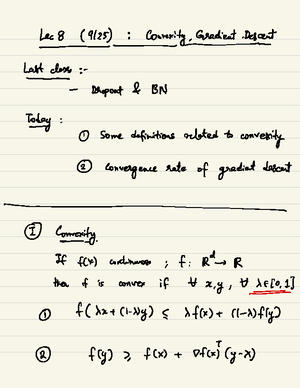 Lec 8 (9/25) : Convexity, Gradient Descent
Last class :-
- Dropout & BN
Today :
① Some definitions related to convexity
② Convergence rate of gradient descent
Ⅰ Convexity.
If f(x) continuous ; f: ℝᵈ → ℝ
then f is convex if ∀ x,y, ∀ λ∈[0,1]
① f(λx + (1-λ)y) ≤ λf(x) + (1-λ)f(y)
② f(y) ≥ f(x) + ∇f(x)ᵀ(y-x)